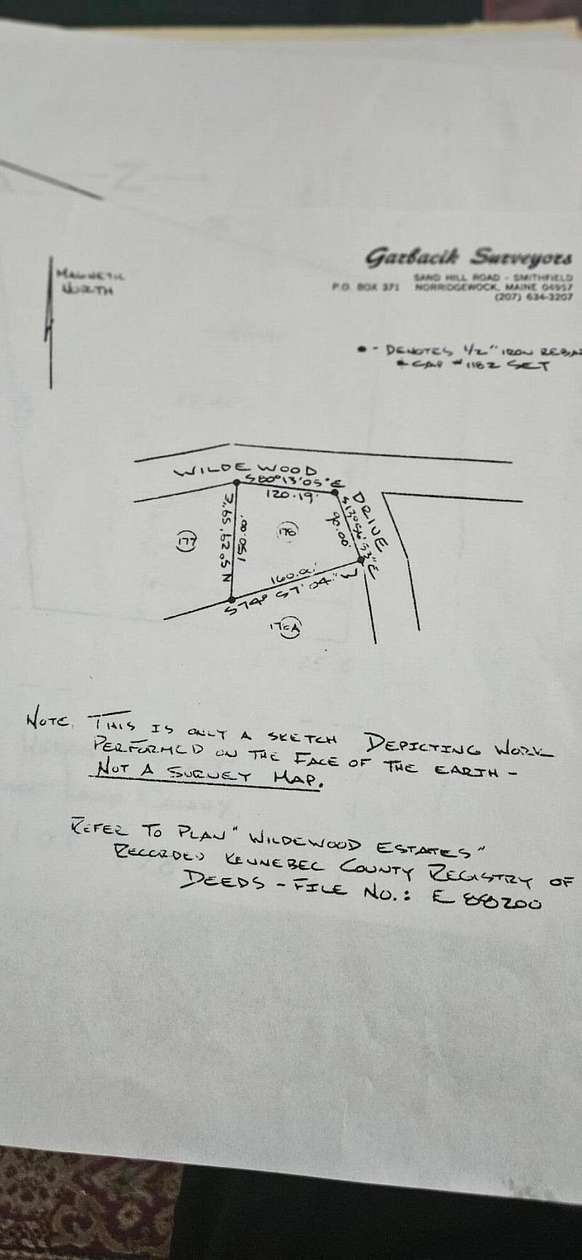 Garbacik Surveyors
SAND HILL ROAD - SMITHFIELD
P.O. BOX 371 NORRIDGEWOCK, MAINE 04957
(207) 634-3207
MAGNETIC
NORTH
● - DENOTES 1/2" IRON REBAR
& CAP #1182 SET
WILDEWOOD
DRIVE
S80°13'05"E
120.19'
90.00'
150.00'
177
176
160.00'
S74° 57' 04"
NOTE: THIS IS ONLY A SKETCH DEPICTING WORK
PERFORMED ON THE FACE OF THE EARTH -
NOT A SURVEY MAP.
REFER TO PLAN "WILDEWOOD ESTATES"
RECORDED KENNEBEC COUNTY REGISTRY OF
DEEDS - FILE NO.: E 88200